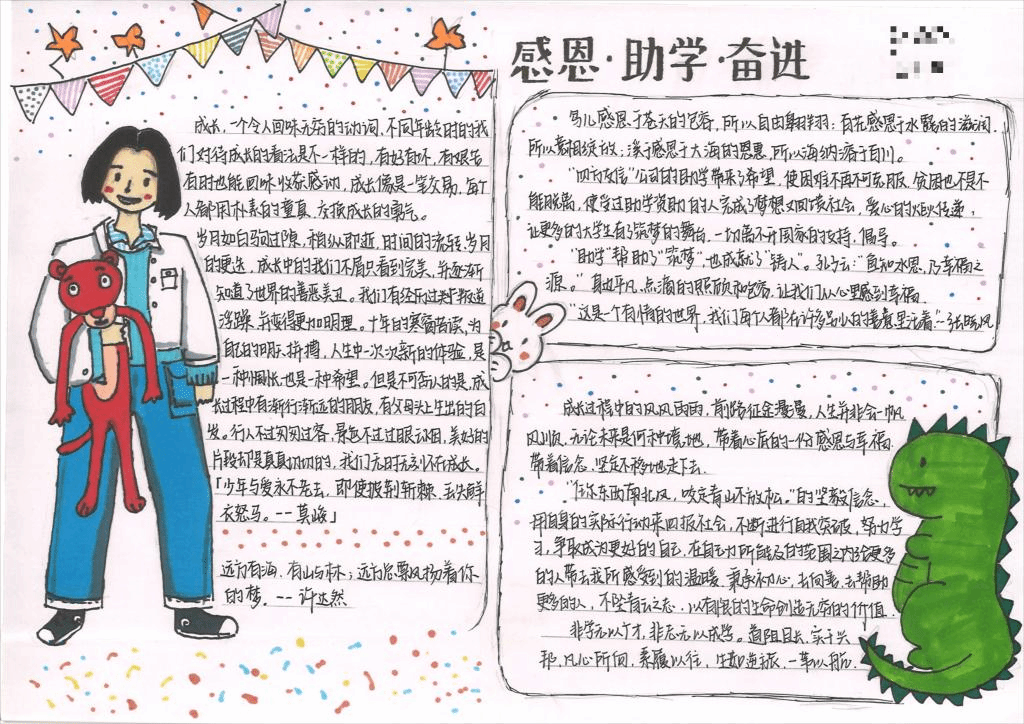 感恩·助学·奋进
成长,一个令人回味无穷的动词,不同年龄时的我
们对待成长的看法是不一样的,有好有坏,有艰苦
有时也能回味收获感动,成长像是一笔交易,每个
人都用朴素的童真,交换成长的勇气。
岁月如白驹过隙,稍纵即逝,时间的流转,岁月
的更迭,成长中的我们不再只看到完美,并逐渐
知道了世界的善恶美丑。我们有经历过叛逆
浮躁,并变得更加明理。十年的寒窗苦读,为
自己的明天拼搏,人生中一次次新的体验,是
一种惆怅也是一种希望。但是不可否认的是,成
长过程中有渐行渐远的朋友,有父母头上生出的白
发。行人不过匆匆过客,景色不过过眼云烟,美好的
片段却是真真切切的,我们无时无刻不在成长。
「少年与爱永不老去,即使披荆斩棘,丢失鲜
衣怒马。--莫峻」
远方有海,有山与林;远方总飘扬着你
的梦。--许达然
鸟儿感恩于苍天的包容,所以自由翱翔;百花感恩于水露的滋润,
所以竞相绽放;溪于感恩于大海的恩惠,所以海纳
"公司的助学带来了希望,使困难不再不可克服,贫困也不是不
能脱离,使受过助学资助的人完成了梦想又回馈社会,爱心的火炬传递,
让更多的大学生有了筑梦的舞台,一切离不开国家的支持,倡导。
"助学"帮助了"筑梦"也成就了"铸人"。孔子云:"良知水恩,乃幸福之
源。"身边平凡、点滴的照顾和包容,让我们从心里感到幸福。
"这是一个有情的世界,我们每个人都在许多
成长过程中的风风雨雨,前路征途漫漫,人生并非会一帆
风顺,无论未来是何种境地,带着心底的一份感恩与幸福
带着信念,坚定不移地走下去。
"任尔东西南北风,咬定青山不放松。"的坚毅信念,
用自身的实际行动来回报社会,不断进行自我突破,努力学
习,争取成为更好的自己,在自己力所能及的范围之内给更多
的人带去我所感受到的温暖。秉承初心,去向善,去帮助
更多的人,不坠青云之志,以有限的生命创造无穷的价值。
非学无以广才,非志无以成学。道阻且长,实干兴
邦,凡心所向,素履以往,生如逆旅,一苇以航。